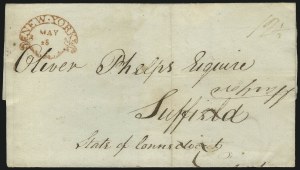 NEW-YORK
MAY
Oliver Phelps Esquire
Suffield
State of Connecticut